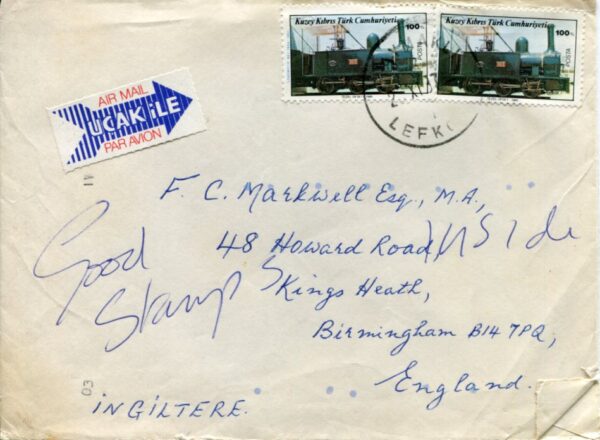 Kuzey Kıbrıs Türk Cumhuriyeti
100
POSTA
Kuzey Kıbrıs Türk Cumhuriyeti
100
POSTA
LEFK
AIR MAIL
UÇAK İLE
PAR AVION
F. C. Markwell Esq., M.A.,
48 Howard Road,
Kings Heath,
Birmingham B14 7PQ,
England.
Good
Stamps
Inside
İNGİLTERE.
03